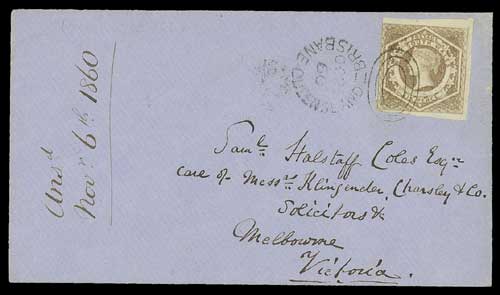 Ansd
Novr 6th 1860
BRISBANE
QUEENSLAND
Saml. Halstaff Coles Esqre
care of Messrs Klingender, Charsley & Co.
Solicitors &
Melbourne
Victoria.